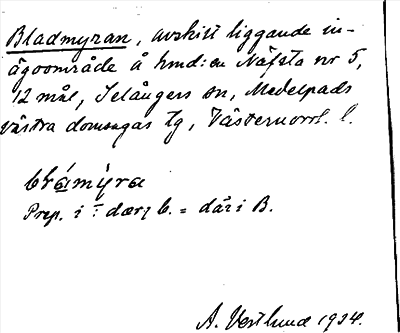 Bladmyran, avskilt liggande in-
ägoområde å hmd:en Näfsta nr 5,
12 mål, Selångers sn, Medelpads
västra domsagas tg, Västernorrl. l.
blámỳra
Prep. i dær, b. = där i B.
A. Vestlund 1924.